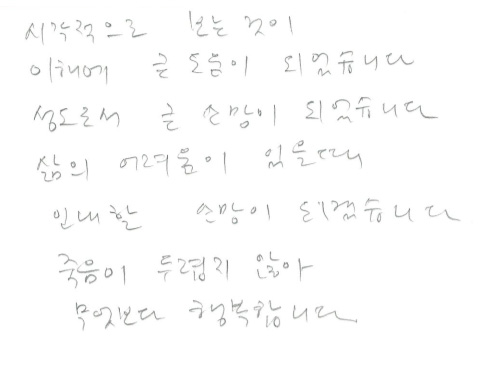 시각적으로 보는 것이
이해에 큰 도움이 되었습니다
성도로서 큰 소망이 되었습니다
삶의 어려움이 있을때
인내할 소망이 되겠습니다
죽음이 두렵지 않아
무엇보다 행복합니다